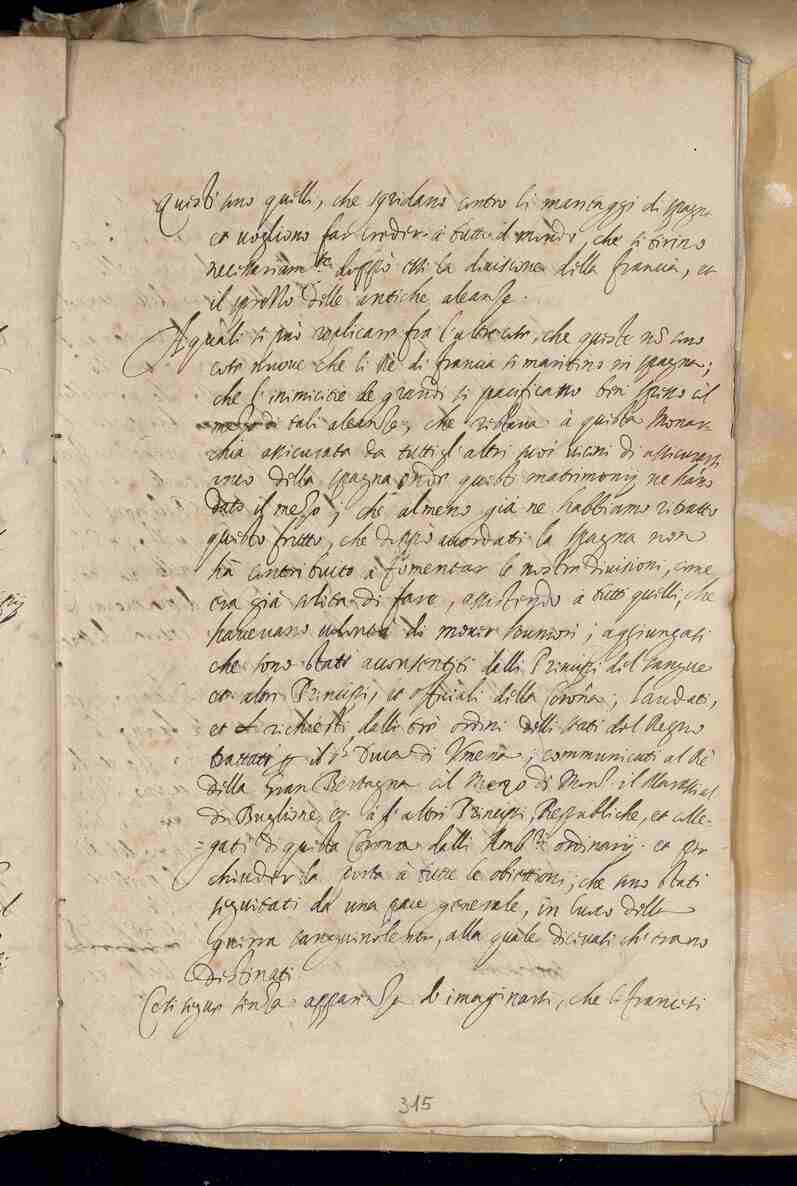 Questi sono quelli, che gridano contro li mariaggi di spagna
et vogliono far creder à tutto il mondo, che si tirino
necessariam.te doppo essi la divisione della francia, et
il sprezzo delle antiche aleanze.
A quali si può replicare fra l'altre cose, che queste nō sono
cose nuove che li Rè di francia si maritino in spagna;
che l'inimicitie de grandi si pacificano ben spesso col
mezo di tali aleanze, che restava à questa Monar
chia assicurata da tutti gl'altri suoi vicini di assicurarsi
anco della spagna, onde questi matrimonij ne hāno
dato il mezo; che almeno già ne habbiamo ritratto
questo frutto, che doppo accordati la spagna non
hà contribuito à fomentar le nostre divisioni, come
era già solita di fare, assistendo à tutti quelli, che
havevano volontà di mover romori; aggiungasi
che sono stati acconsentiti dalli Principi del sangue
et altri Principi, et officiali della Corona, laudati,
et richiesti dalli tre ordini delli stati del Regno
trattati p il s.r Duca di Umena, communicati al Rè
della Gran Bertagna col mezo di Mons. il Marescial
di Buglione, et à gl'altri Principi, Republiche, et colle-
-gati di questa Corona dalli Amb.ri ordinarij. et per
chiuder la porta à tutte le obiettioni, che sono stati
seguitati da una pace generale, in luogo della
guerra sanguinolente, alla quale dicevasi ch'erano
destinati
Così segue senza apparenza de imaginarsi, che li francesi
315